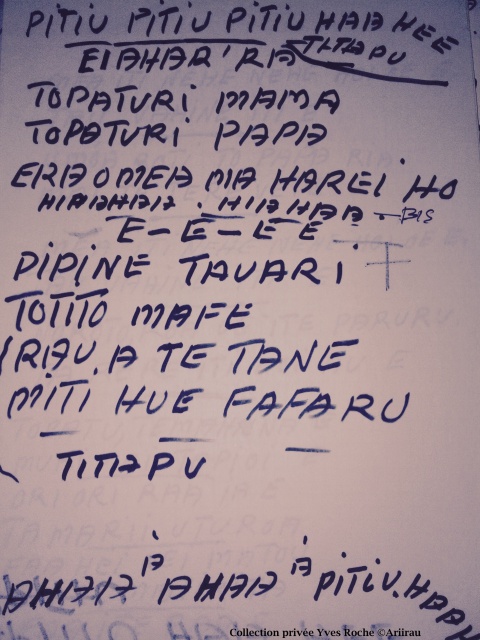 PITIU PITIU PITIU HAA HEE
TITAPU
EIAHAR'RA
TOPATURI MAMA
TOPATURI PAPA
ERAOMEA MA HAREI HO
HIAAHAIA HIAHAA — BIS
E-E-E E
PIPINE TAUARI
TOTITO MAFE
RAU.A TE TANE
MITI HUE FAFARU
TITAPU
AHIAIA IA AHAA IA PITIU.HAAU
Collection privée Yves Roche ©Ariirau